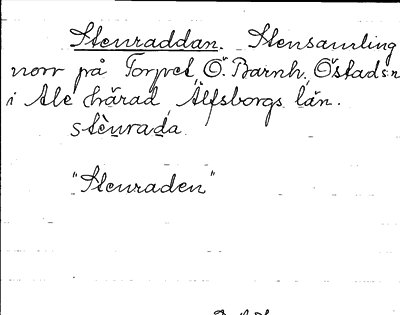 Stenraddan. Stensamling
norr på Torpet, Ö. Barnh. Östads sn
i Ale härad Älfsborgs län.
stènrada.
"Stenraden"